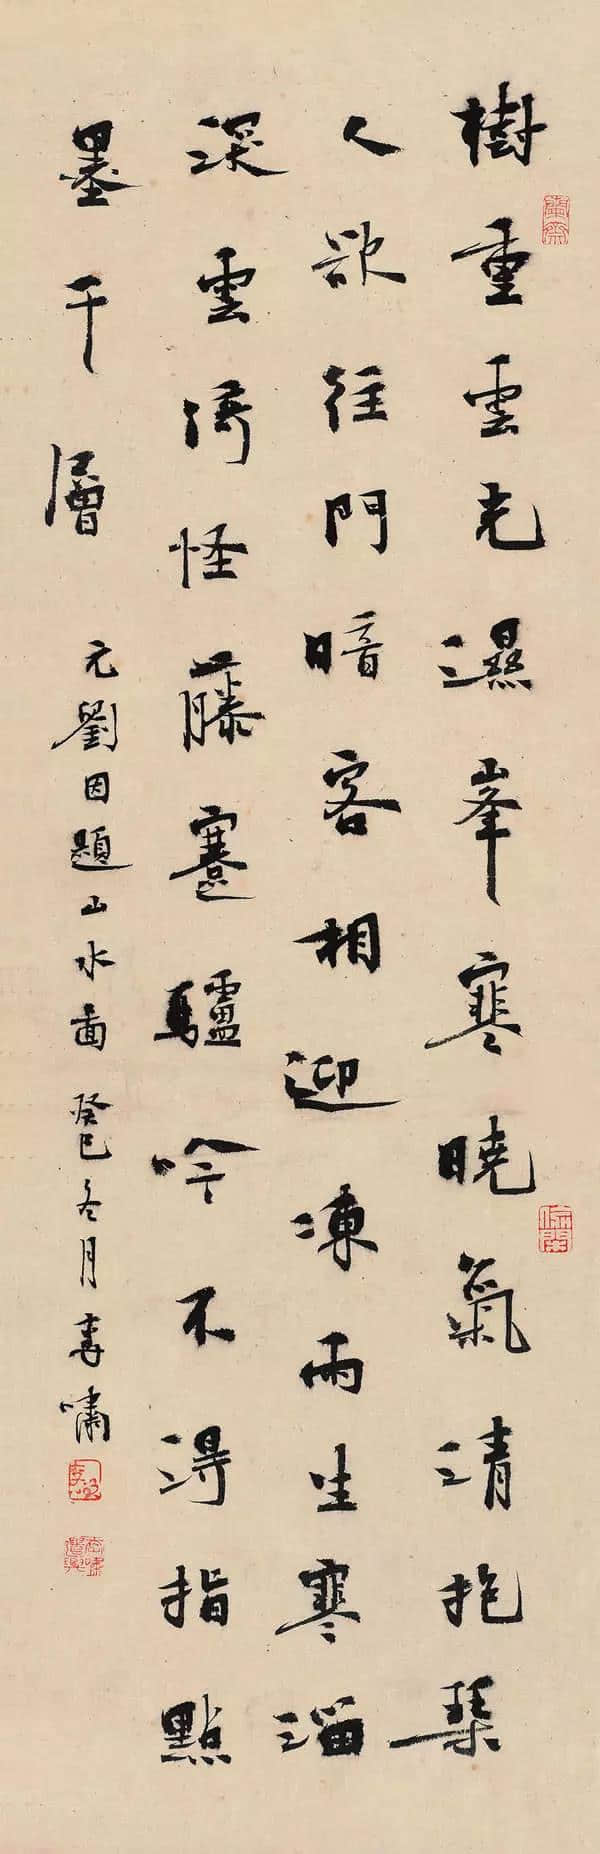 樹重雲光濕峯寒曉氣清抱琴
人欲往門暗客相迎凍雨生寒溜
深雲倚怪藤蹇驢吟不得指點
墨千層 元劉因題山水圖 癸巳冬月李嘯